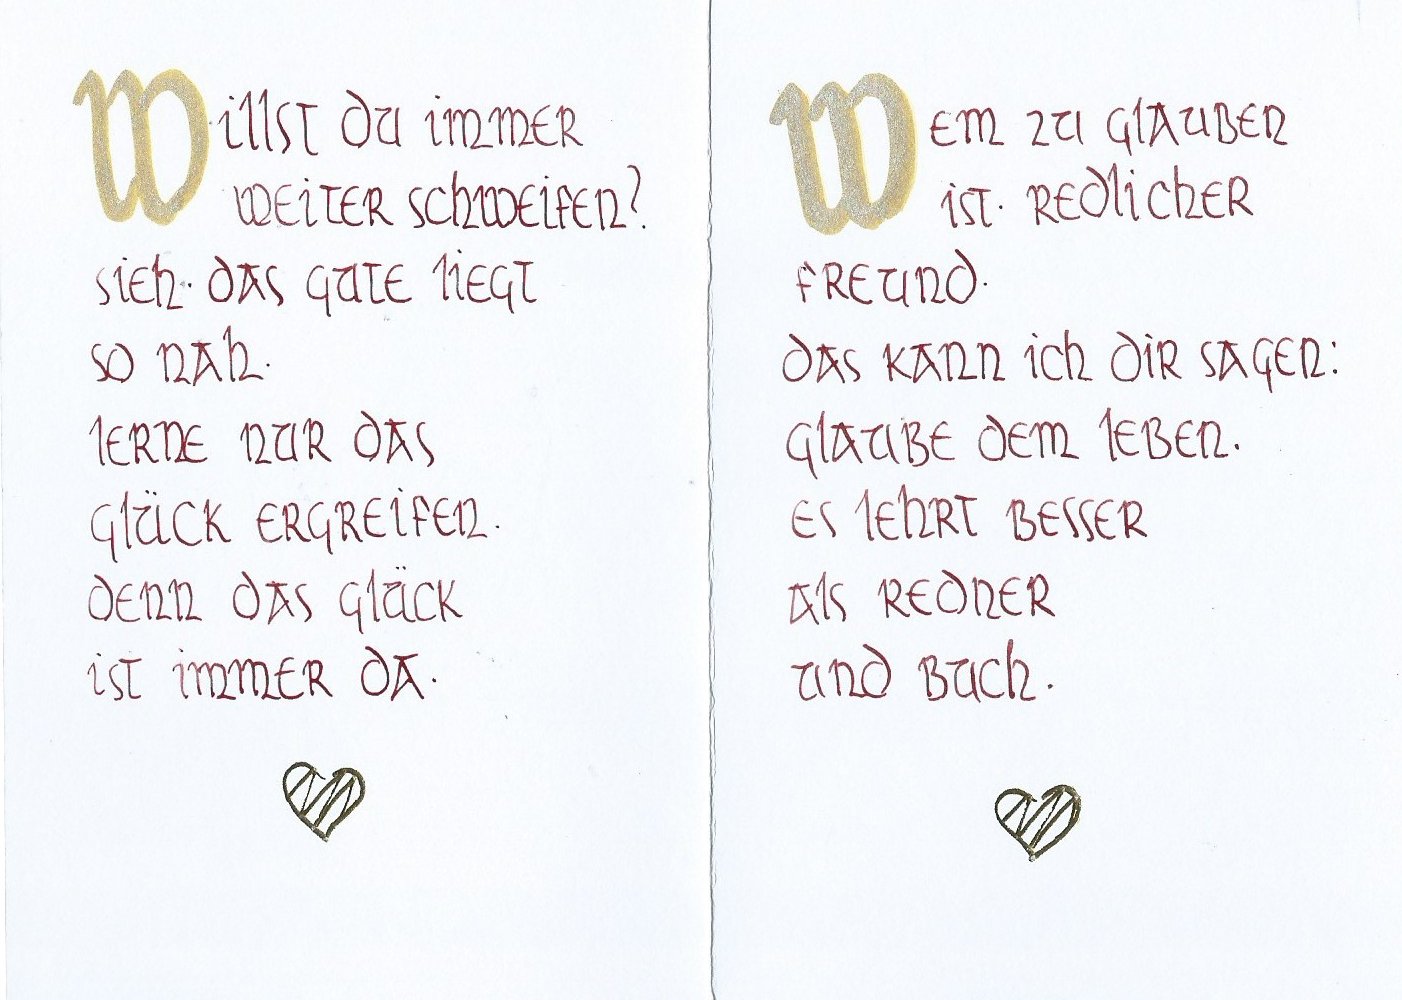 Willst du immer
weiter schweifen?
sieh. das gute liegt
so nah.
lerne nur das
glück ergreifen.
denn das glück
ist immer da.
Wem zu glauben
ist. redlicher
freund.
das kann ich dir sagen:
glaube dem leben.
es lehrt besser
als redner
und buch.